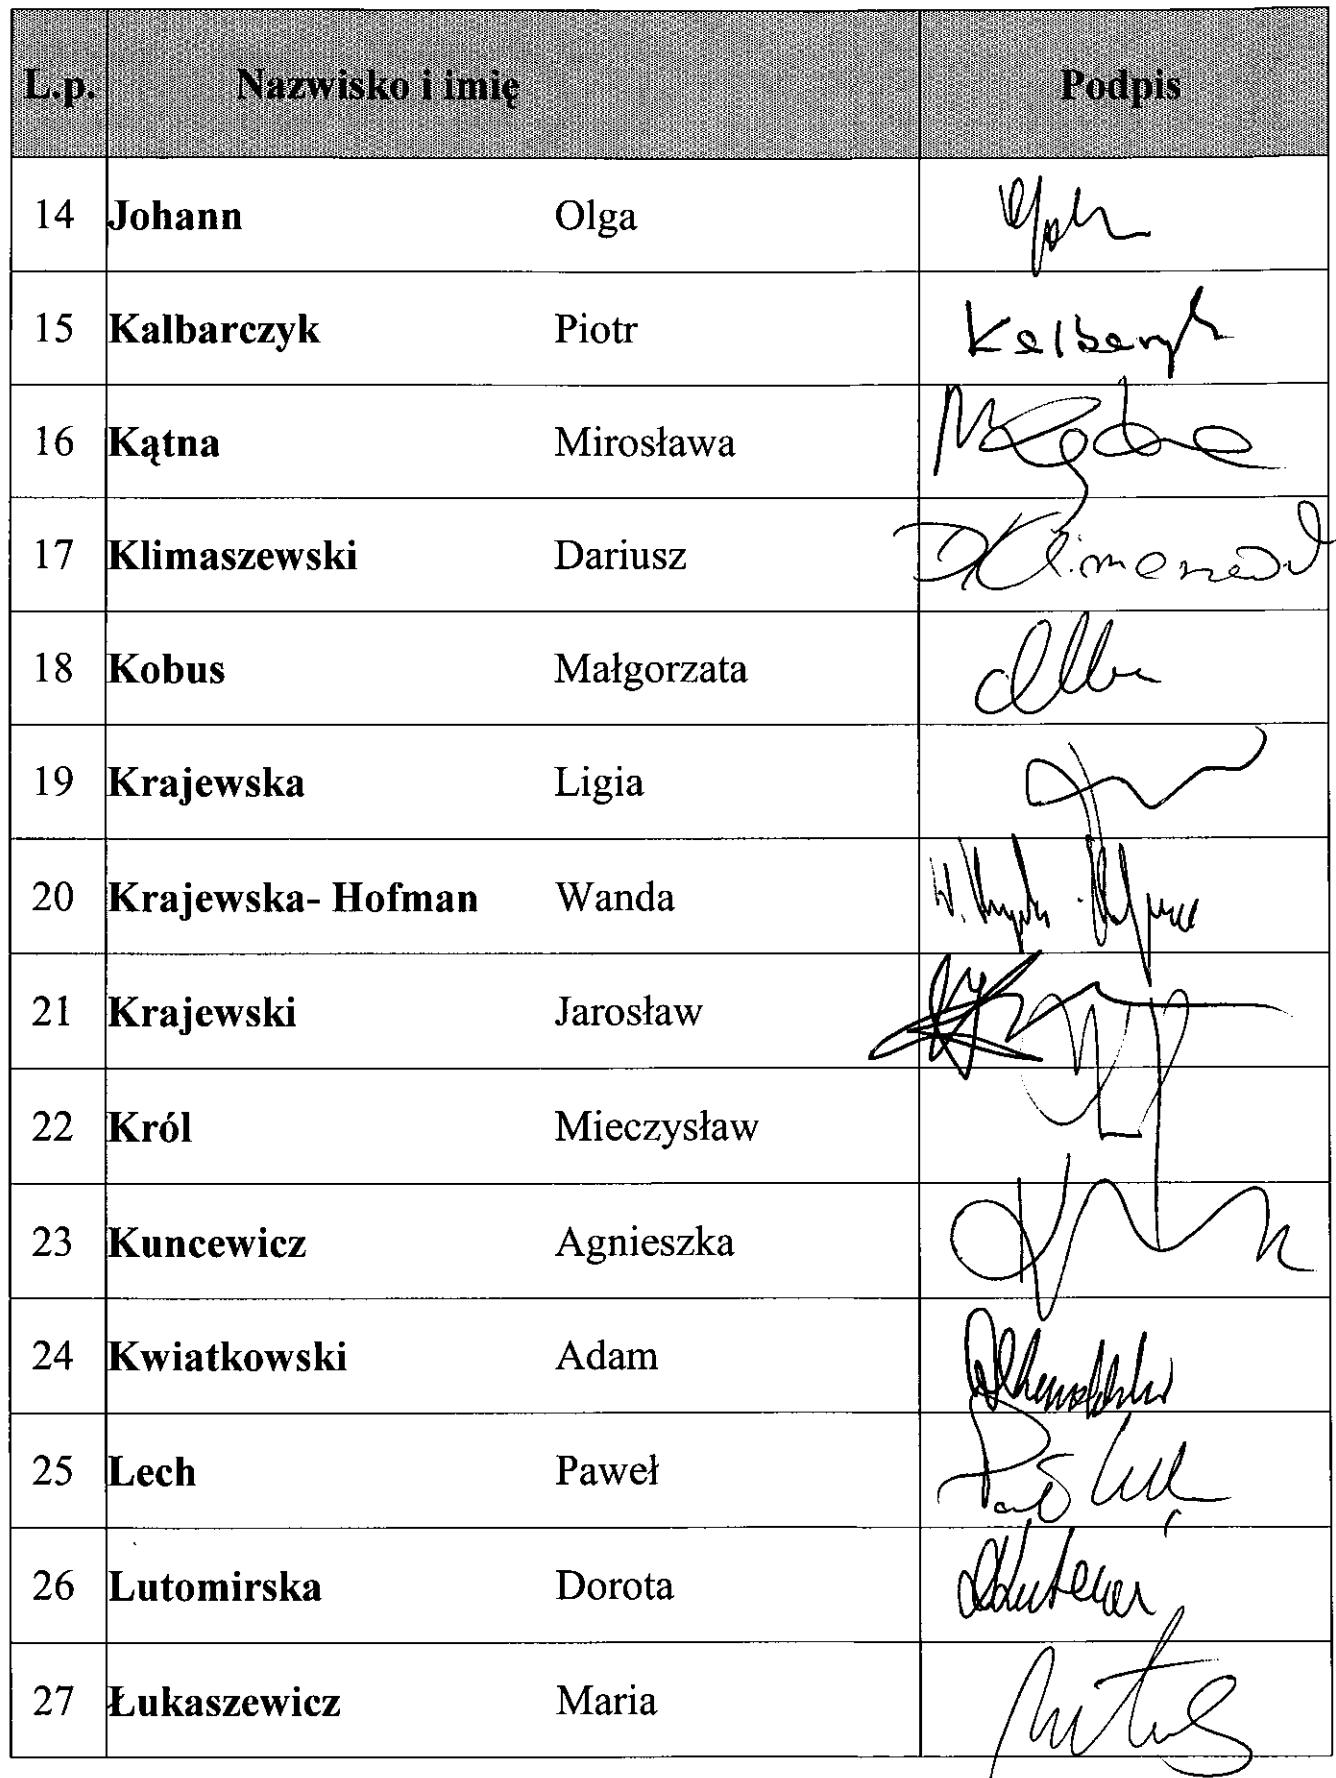 L.p. Nazwisko i imię Podpis
14 Johann Olga
15 Kalbarczyk Piotr
16 Kątna Mirosława
17 Klimaszewski Dariusz
18 Kobus Małgorzata
19 Krajewska Ligia
20 Krajewska- Hofman Wanda
21 Krajewski Jarosław
22 Król Mieczysław
23 Kuncewicz Agnieszka
24 Kwiatkowski Adam
25 Lech Paweł
26 Lutomirska Dorota
27 Łukaszewicz Maria